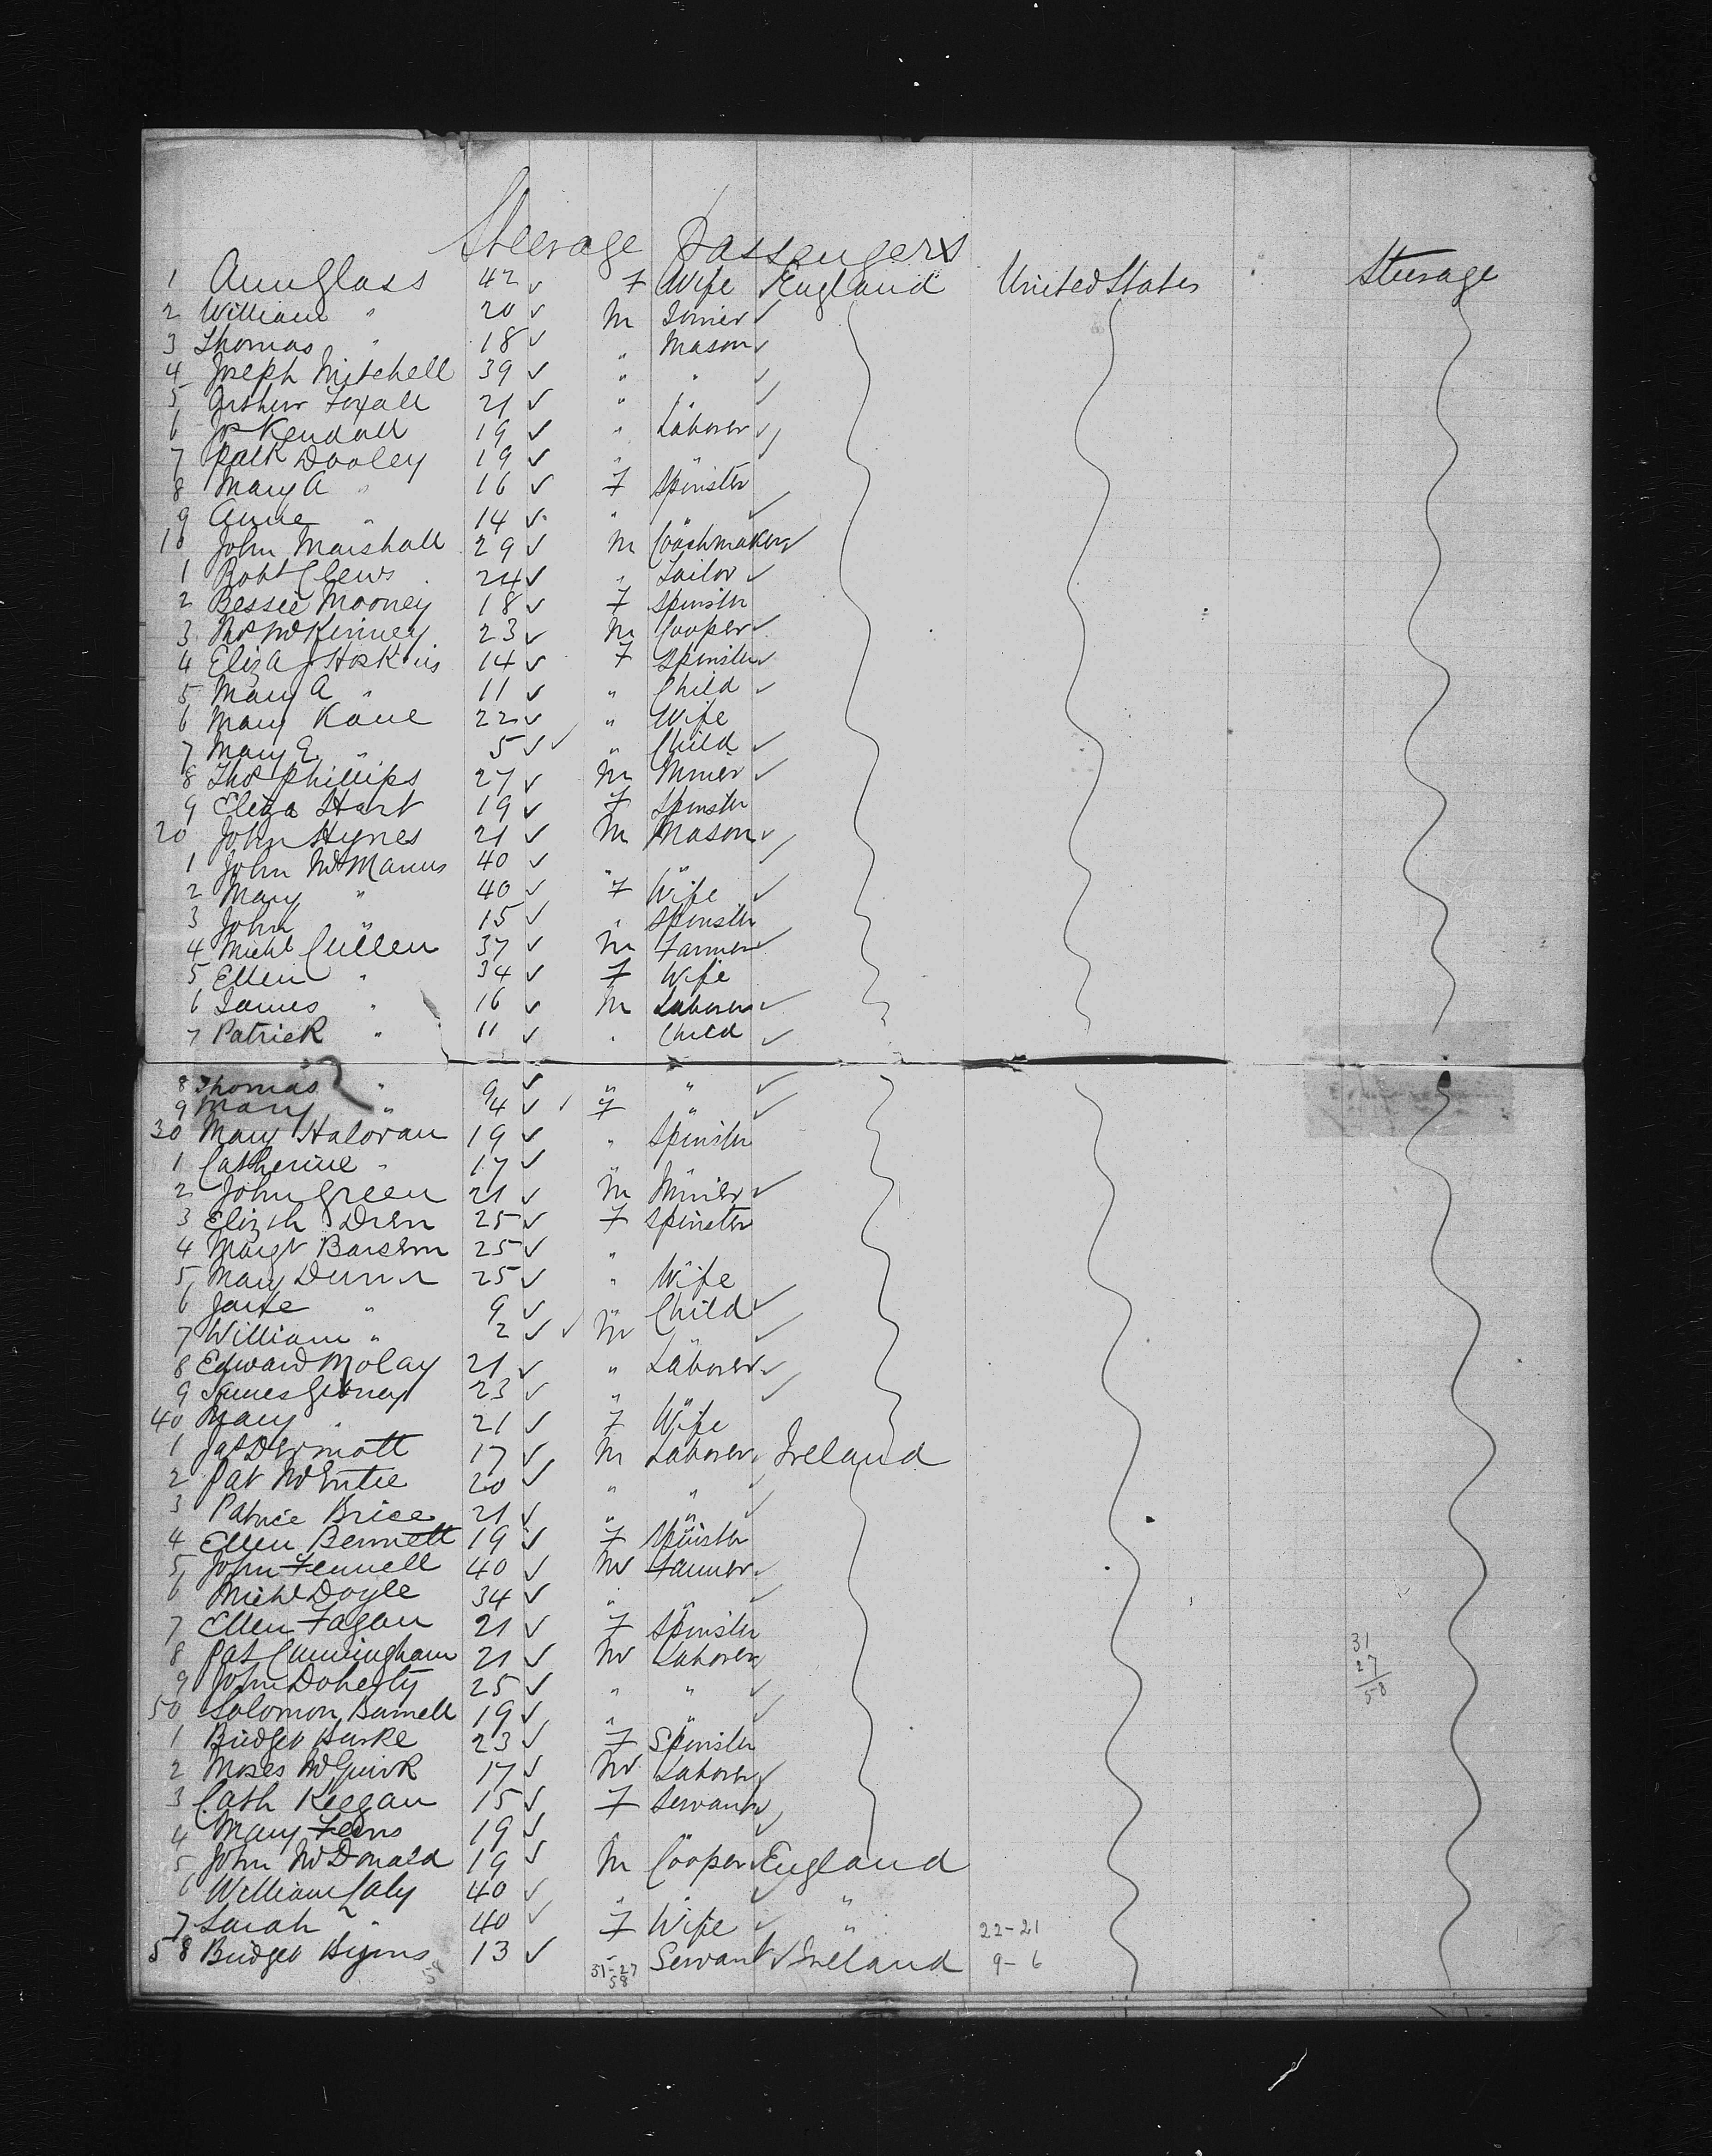 Steerage Passengers
1 Ann Glass 42 ✓ F Wife England United States Steerage
2 William " 20 ✓ M Joiner ✓
3 Thomas " 18 ✓ " Mason ✓
4 Joseph Mitchell 39 ✓ " " ✓
5 Arthur Foxall 21 ✓ " " ✓
6 Jos Kendall 19 ✓ " Laborer ✓
7 Patk Dooley 19 ✓ " " ✓
8 Mary A " 16 ✓ F Spinster
9 Anne " 14 ✓ " " ✓
10 John Marshall 29 ✓ M Coachmaker ✓
1 Robt Clews 24 ✓ " Tailor ✓
2 Bessie Mooney 18 ✓ F Spinster
3 Thos McKinney 23 ✓ M Cooper ✓
4 Eliza J Hoskins 14 ✓ F Spinster ✓
5 Mary A " 11 ✓ " Child ✓
6 Mary Kane 22 ✓ " Wife
7 Mary E " 5 ✓ ✓ " Child ✓
8 Thos Phillips 27 ✓ M Miner ✓
9 Eliza Hart 19 ✓ F Spinster
20 John Hynes 21 ✓ M Mason ✓
1 John McManus 40 ✓ " " ✓
2 Mary " 40 ✓ F Wife ✓
3 John " 15 ✓ " Spinster
4 Michl Cullen 37 ✓ M Farmer ✓
5 Ellen " 34 ✓ F Wife
6 James " 16 ✓ M Laborer ✓
7 Patrick " 11 ✓ " Child ✓
8 Thomas " 9 ✓ " " ✓
9 Mary " 4 ✓ ✓ F " ✓
30 Mary Haloran 19 ✓ " Spinster
1 Catherine " 17 ✓ " "
2 John Green 21 ✓ M Miner ✓
3 Elizth 25 ✓ F Spinster
4 Margt 25 ✓ " "
5 Mary 25 ✓ " Wife
6 " 9 ✓ " Child ✓
7 William " 2 ✓ ✓ M " ✓
8 Edward 21 ✓ " Laborer ✓
9 James Gibney 23 ✓ " " ✓
40 Mary " 21 ✓ F Wife
1 Jas Dermott 17 ✓ M Laborer Ireland
2 Pat McEntee 20 ✓ " " ✓
3 Patrice Brice 21 ✓ " " ✓
4 Ellen Bennett 19 ✓ F Spinster
5 John Fennell 40 ✓ M Farmer ✓
6 Michl Doyle 34 ✓ " " ✓
7 Ellen Fagan 21 ✓ F Spinster
8 Pat Cunningham 21 ✓ M Laborer 31
9 John Doherty 25 ✓ " " ✓ 27
50 Solomon 19 ✓ " " ✓ 58
1 Bridget Burke 23 ✓ F Spinster
2 Moses McGuirk 17 ✓ M Laborer ✓
3 Cath Keegan 15 ✓ F Servant ✓
4 Mary 19 ✓ " " ✓
5 John McDonald 19 ✓ M Cooper ✓ England
6 William Caly 40 ✓ " " ✓ "
7 Sarah " 40 ✓ F Wife ✓ " 22-21
58 Bridget Byrns 13 ✓ " Servant ✓ Ireland 9-6
58 31-27
58